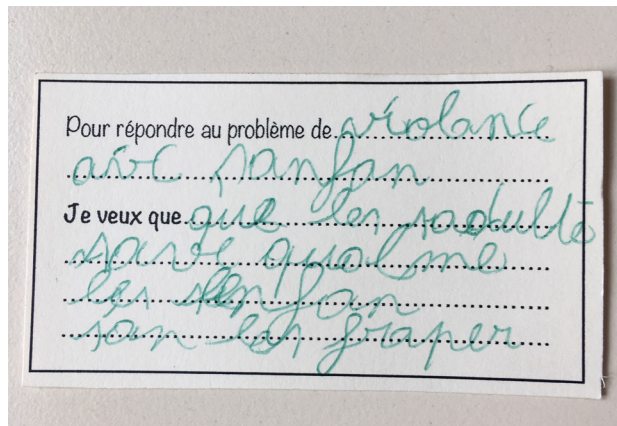 Pour répondre au problème de violance
avec sanfan
Je veux que que les sadulte
save qualme
les senfan
san les fraper